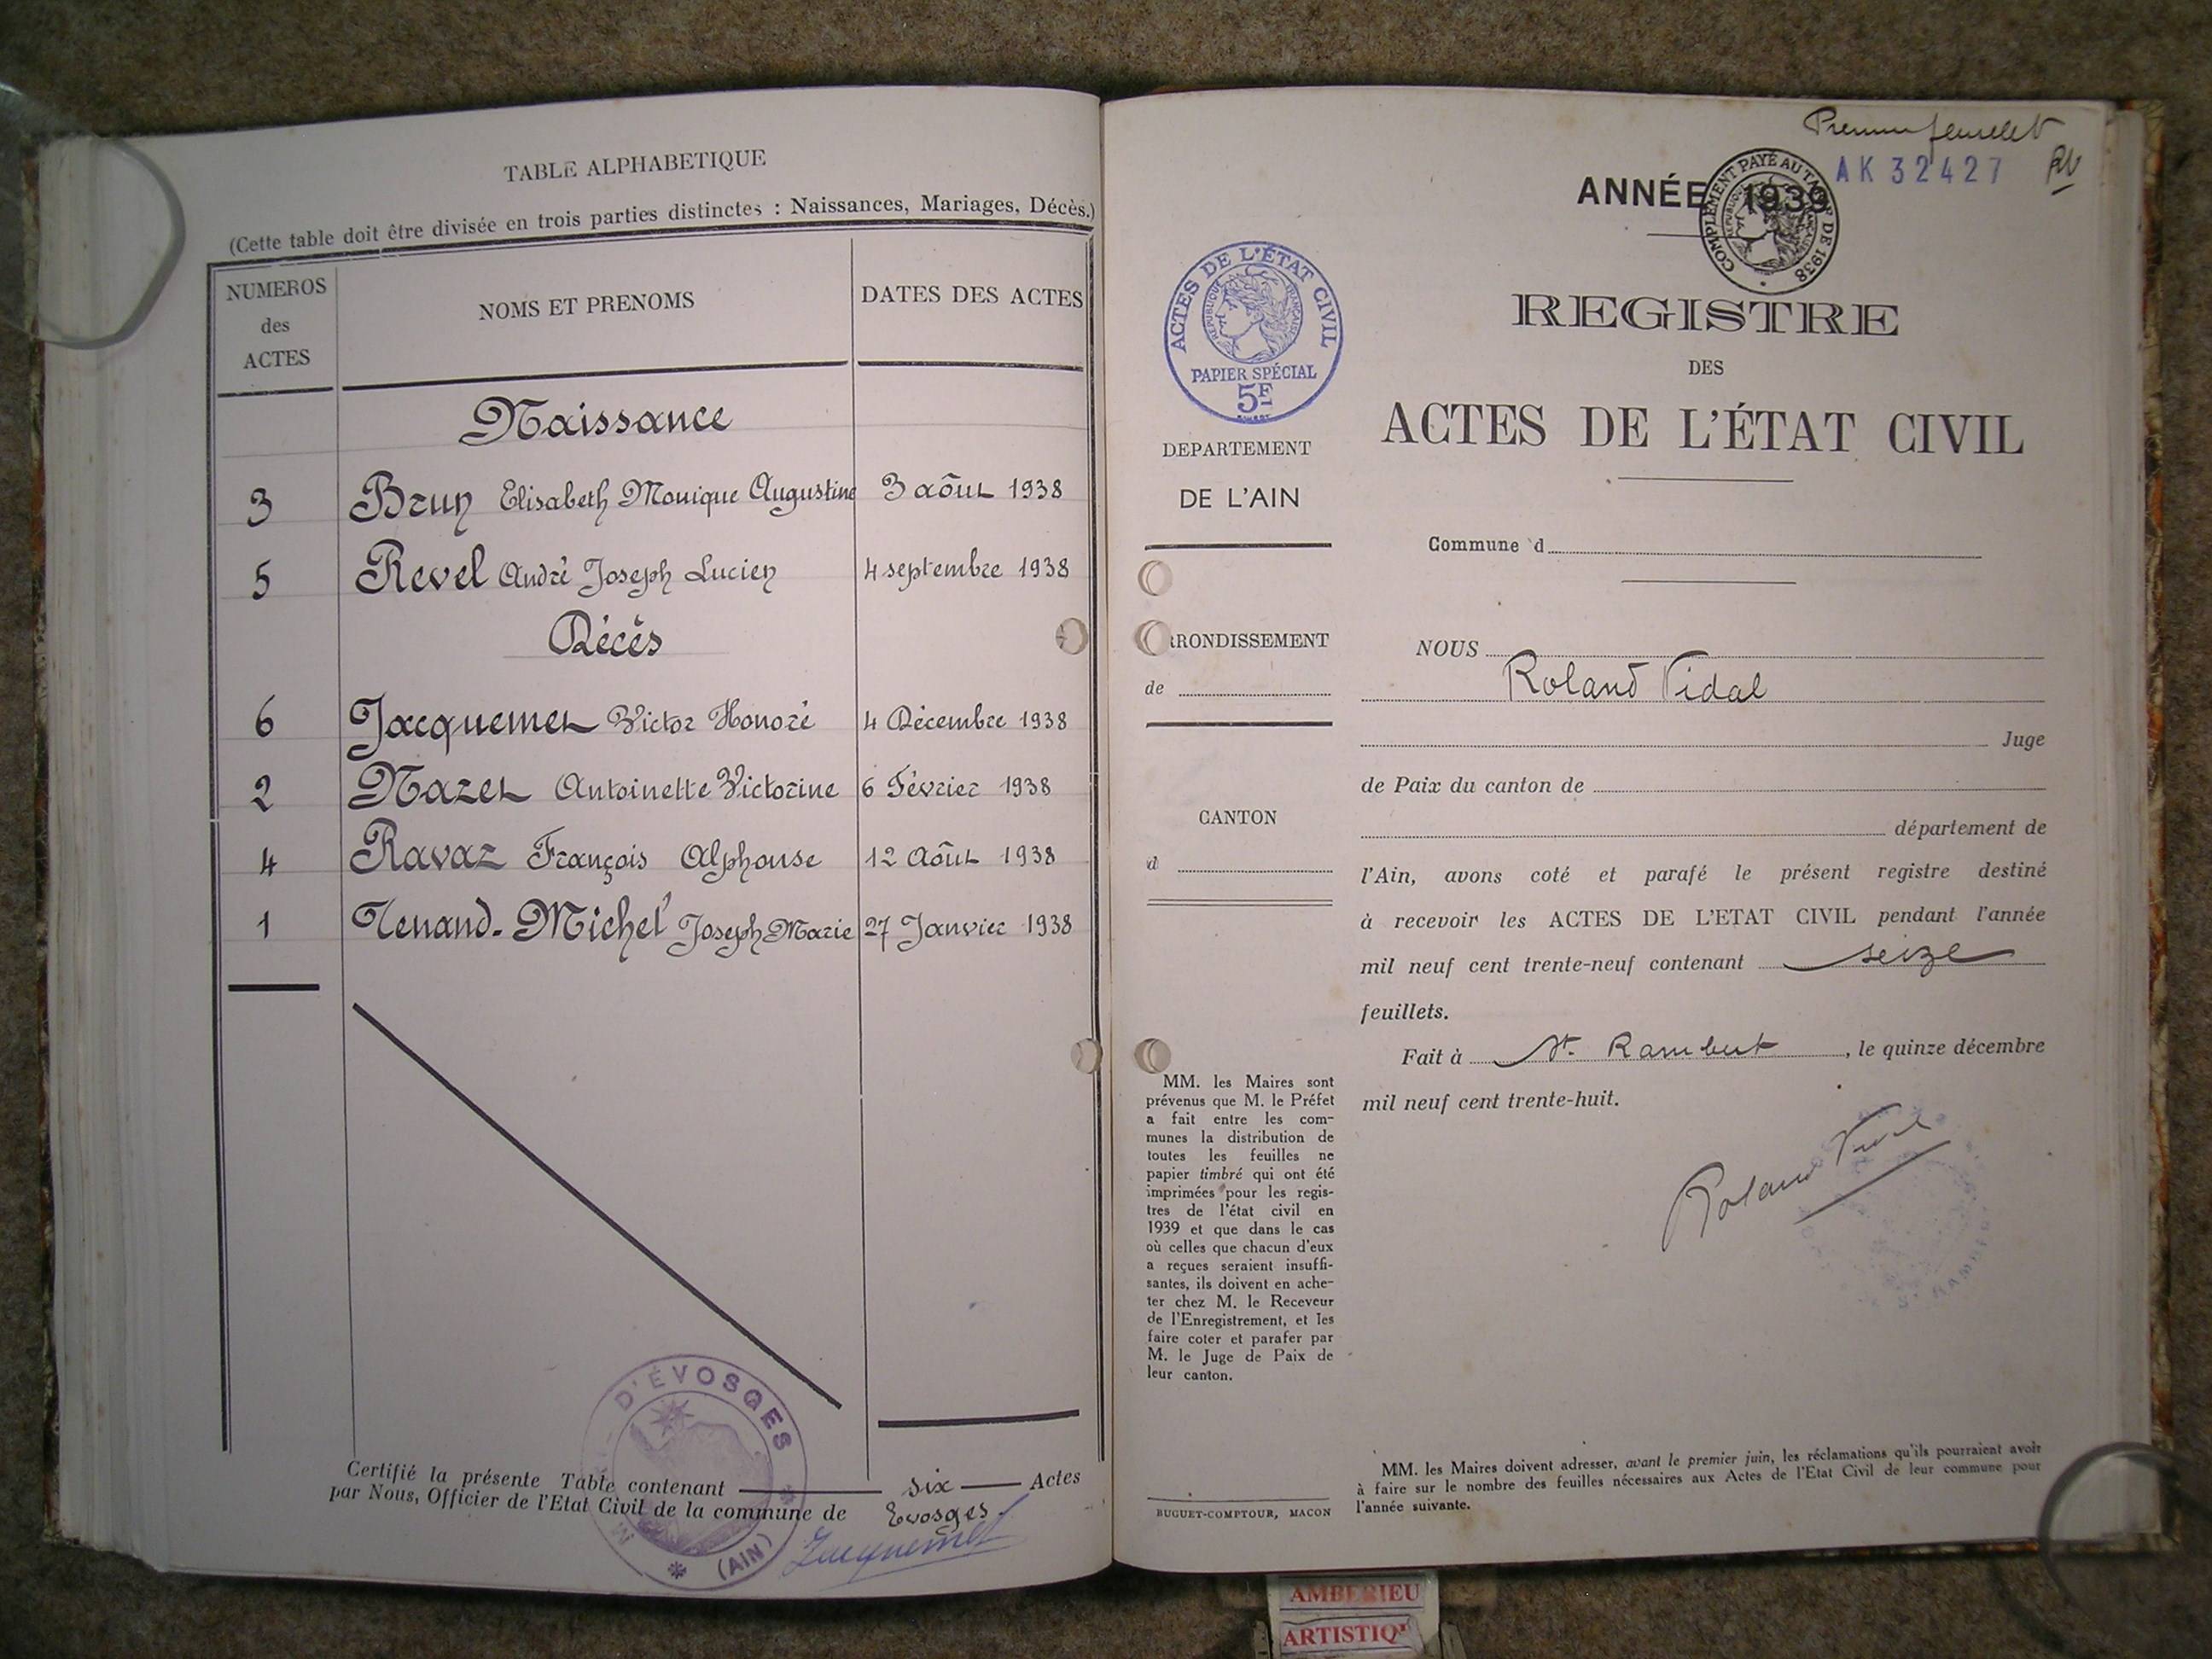 TABLE ALPHABETIQUE
(Cette table doit être divisée en trois parties distinctes : Naissances, Mariages, Décès.)
NUMEROS des ACTES
NOMS ET PRENOMS
DATES DES ACTES
Naissance
3 Brun Elisabeth Monique Augustine 3 aôut 1938
5 Revel André Joseph Lucien 4 septembre 1938
Décès
6 Jacquemet Victor Honoré 4 Décembre 1938
2 Mazet Antoinette Victorine 6 Février 1938
4 Ravaz François Alphonse 12 Aôut 1938
1 Tenand-Michel Joseph Marie 27 Janvier 1938
Certifié la présente Table contenant six Actes
par Nous, Officier de l'Etat Civil de la commune de Evosges.
Jacquemet
D'ÉVOSGES
(AIN)
Premier feuillet
AK 32427
RV
ANNÉE 1939
COMPLÉMENT PAYÉ AU TARIF DE 1938
RÉPUBLIQUE FRANÇAISE
ACTES DE L'ÉTAT CIVIL
RÉPUBLIQUE FRANÇAISE
PAPIER SPÉCIAL
5F
REGISTRE
DES
ACTES DE L'ÉTAT CIVIL
DEPARTEMENT
DE L'AIN
RRONDISSEMENT
de
CANTON
d
MM. les Maires sont
prévenus que M. le Préfet
a fait entre les com-
munes la distribution de
toutes les feuilles ne
papier timbré qui ont été
imprimées pour les regis-
tres de l'état civil en
1939 et que dans le cas
où celles que chacun d'eux
a reçues seraient insuffi-
santes, ils doivent en ache-
ter chez M. le Receveur
de l'Enregistrement, et les
faire coter et parafer par
M. le Juge de Paix de
leur canton.
BUGUET-COMPTOUR, MACON
Commune d
NOUS
Roland Vidal
Juge
de Paix du canton de
département de
l'Ain, avons coté et parafé le présent registre destiné
à recevoir les ACTES DE L'ETAT CIVIL pendant l'année
mil neuf cent trente-neuf contenant seize
feuillets.
Fait à St. Rambert, le quinze décembre
mil neuf cent trente-huit.
Roland Vidal
MM. les Maires doivent adresser, avant le premier juin, les réclamations qu'ils pourraient avoir
à faire sur le nombre des feuilles nécessaires aux Actes de l'Etat Civil de leur commune pour
l'année suivante.
AMBERIEU
ARTISTIQ